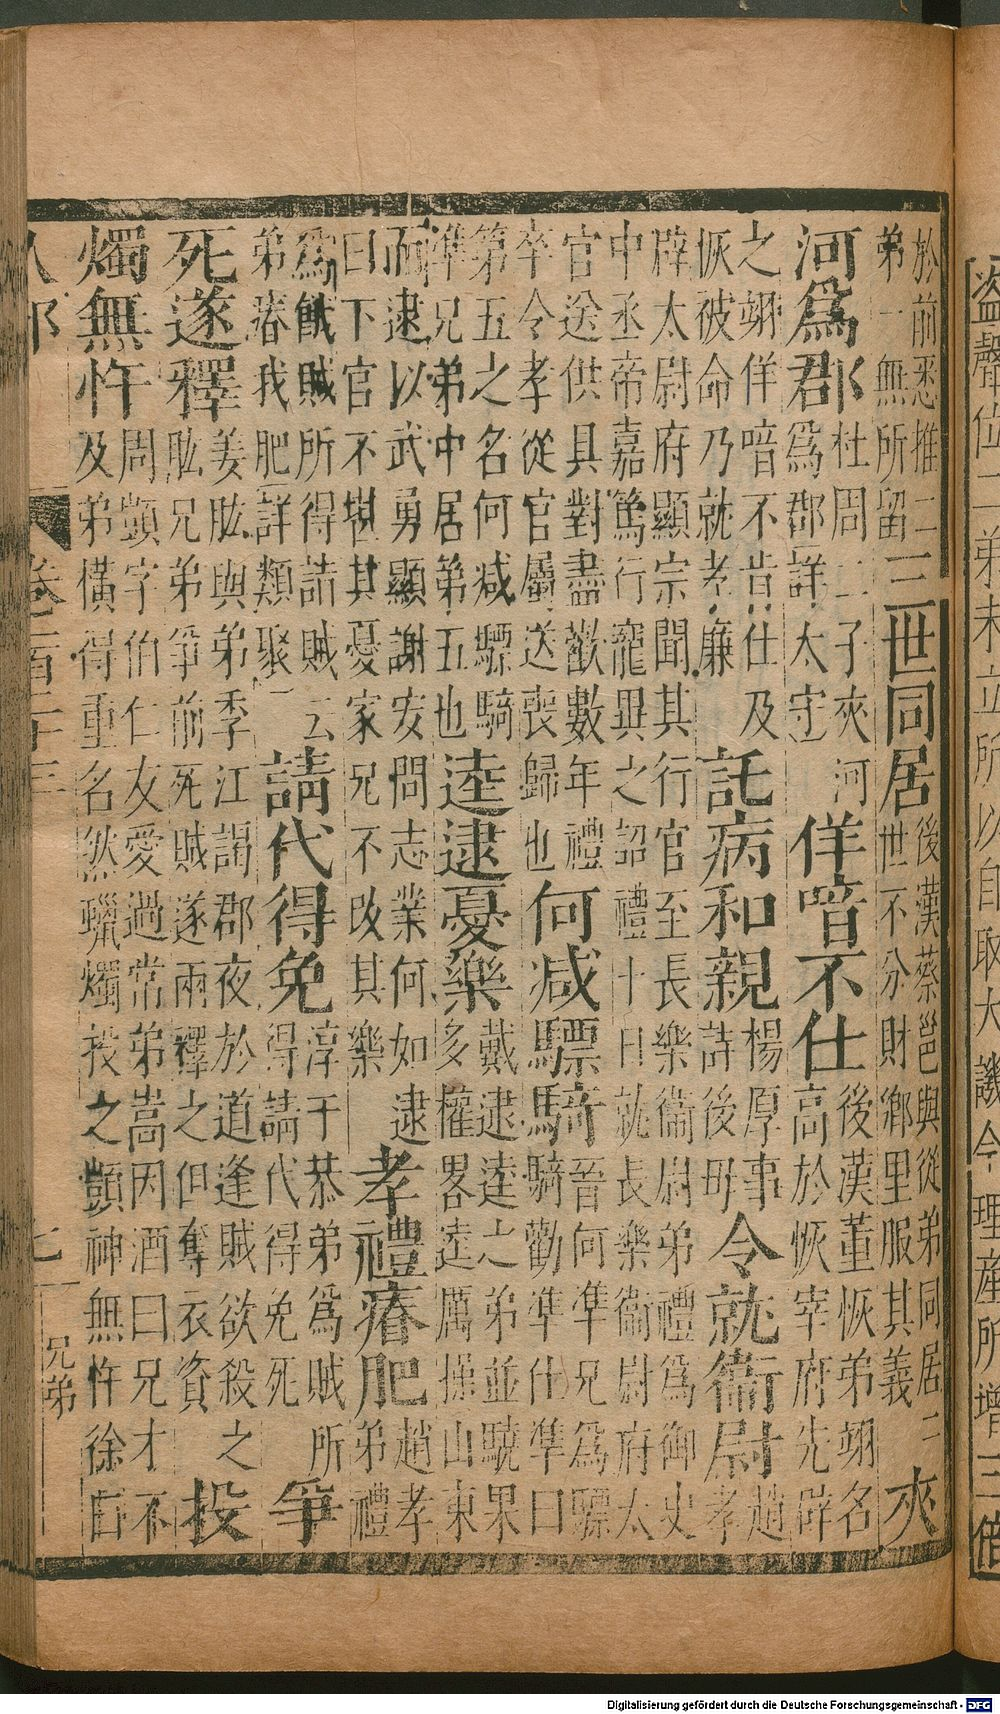 盜聲位二弟未立所以自取大譏今理產所增三倍
於前悉推二
弟一無所留
三世同居
後漢蔡邕與從弟同居二
世不分財鄉里服其義
夾
河爲郡
杜周二子夾河
爲郡詳太守
佯喑不仕
後漢董恢弟翊名
高於恢宰府先辟
之翊佯喑不肯仕及
恢被命乃就孝廉
託病和親
楊厚事
詩後母
令就衞尉
趙
孝
辟太尉府顯宗聞其行官至長樂衞尉弟禮爲御史
中丞帝嘉篤行寵異之詔禮十日就長樂衞尉府太
官送供具對盡歡數年禮
卒令孝從官屬送喪歸也
何減驃騎
晉何準兄爲驃
騎勸準仕準曰
第五之名何減驃騎
準兄弟中居第五也
逵逮憂樂
戴逮逵之弟並驍果
多權畧逵厲操山東
而逮以武勇顯謝安問志業何如逮
曰下官不堪其憂家兄不改其樂
孝禮瘠肥
趙孝
弟禮
爲餓賊所得詰賊云
弟瘠我肥詳類聚一
請代得免
淳于恭弟爲賊所
得請代得免死
爭
死遂釋
姜肱與弟季江謁郡夜於道逢賊欲殺之
肱兄弟爭前死賊遂兩釋之但奪衣資
投
燭無忤
周顗字伯仁友愛過常弟嵩因酒曰兄才不
及弟橫得重名然蠟燭投之顗神無忤徐曰
人部
七
兄弟
Digitalisierung gefördert durch die Deutsche Forschungsgemeinschaft - DFG